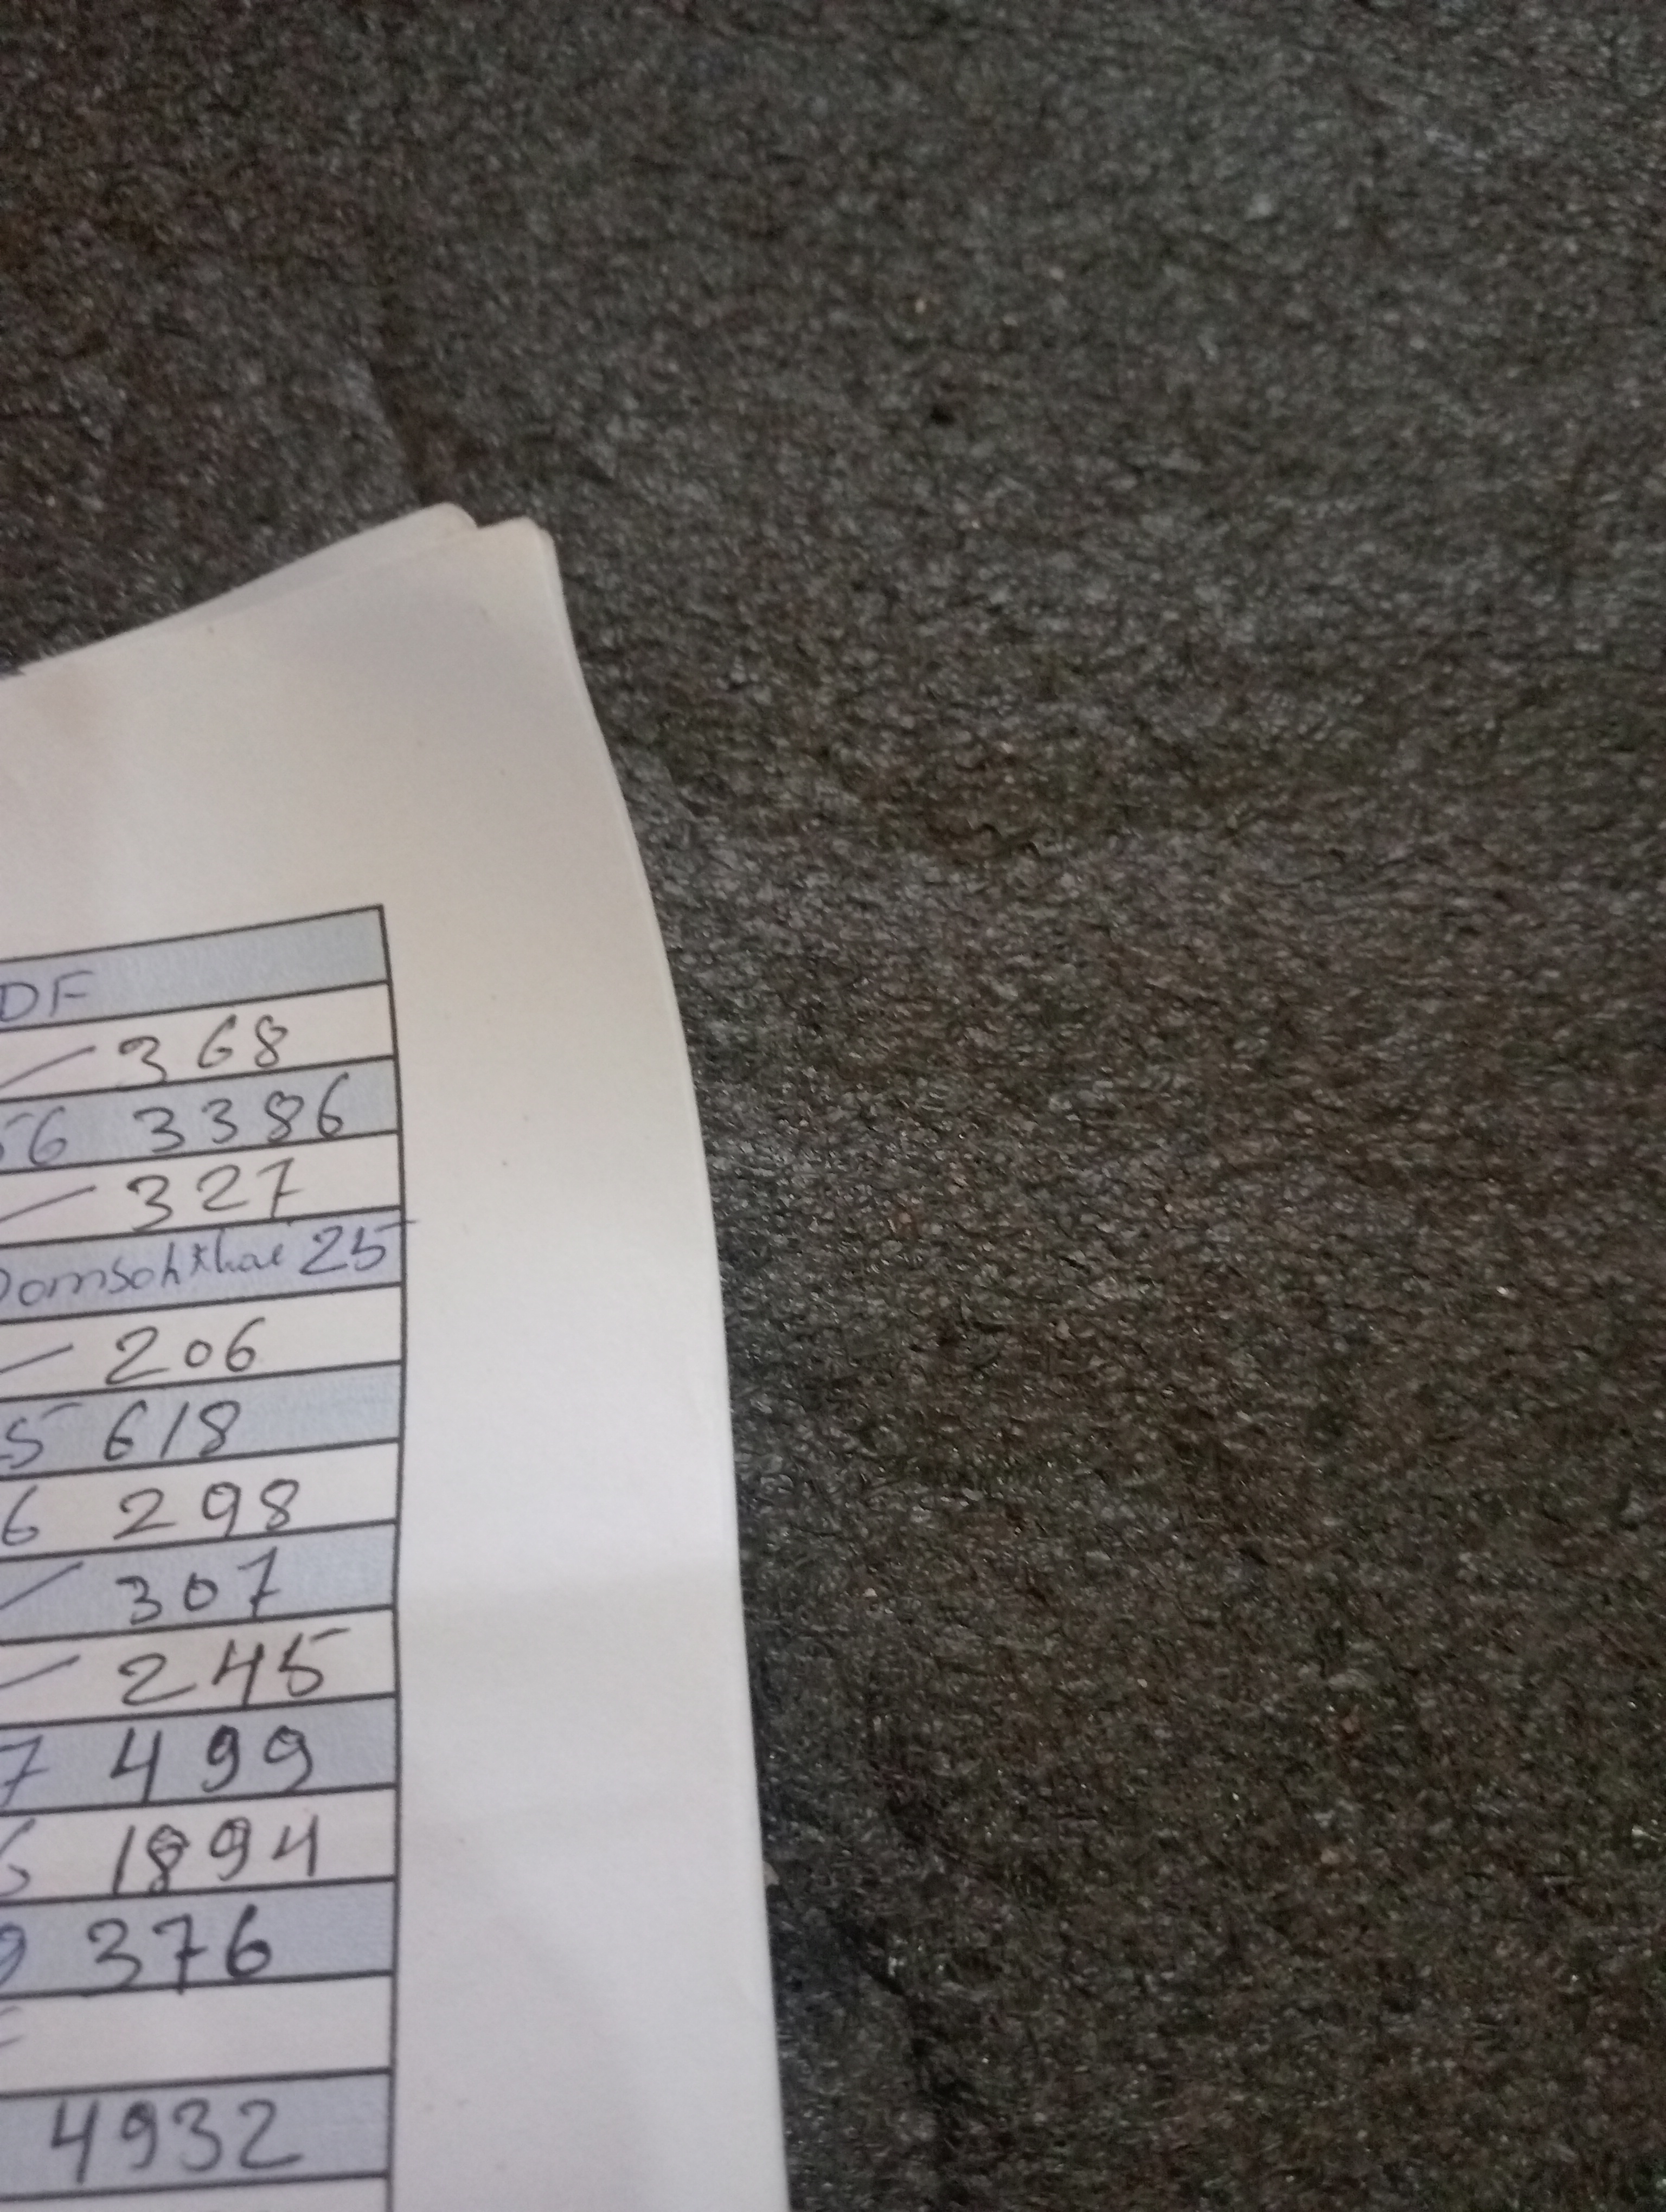 DF
368
56 3386
327
25
206
5 618
6 298
307
245
7 499
1894
376
4932